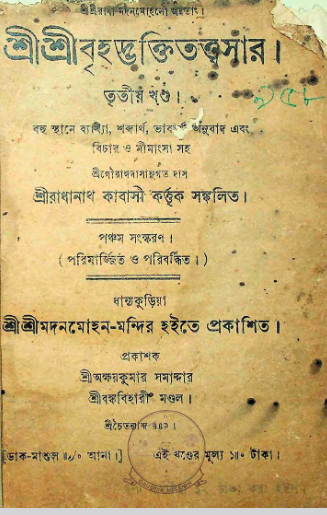 শ্রীশ্রীরাধা মদনমোহনৌ জয়তাং।
শ্রীশ্রীবৃহদ্ভক্তিতত্ত্বসার।
তৃতীয় খণ্ড।
বহু স্থানে ব্যাখ্যা, শব্দার্থ, ভাবার্থ অনুবাদ এবং
বিচার ও মীমাংসা সহ
শ্রীগৌরাঙ্গদাসানুগত দাস
শ্রীরাধানাথ কাবাসী কর্ত্তৃক সঙ্কলিত।
পঞ্চম সংস্করণ।
( পরিমার্জ্জিত ও পরিবর্দ্ধিত। )
ধান্যকুড়িয়া
শ্রীশ্রীমদনমোহন-মন্দির হইতে প্রকাশিত।
প্রকাশক
শ্রীঅক্ষয়কুমার সমাদ্দার
শ্রীবঙ্কবিহারী মণ্ডল।
শ্রীচৈতন্যাব্দ
[ডাক-মাশুল ৷৶০ আনা।] এই খণ্ডের মূল্য ১৷৷০ টাকা।